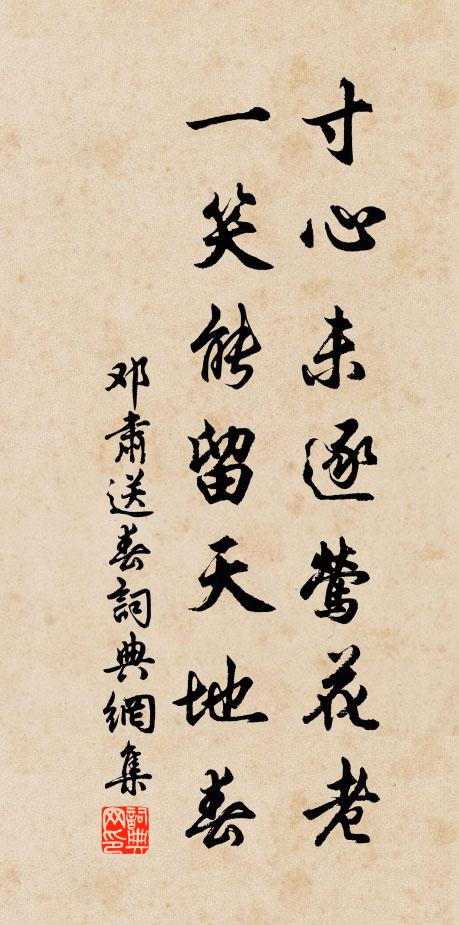 寸心未逐莺花老
一笑能留天地春
邓肃送春詞典網集
詞典网印